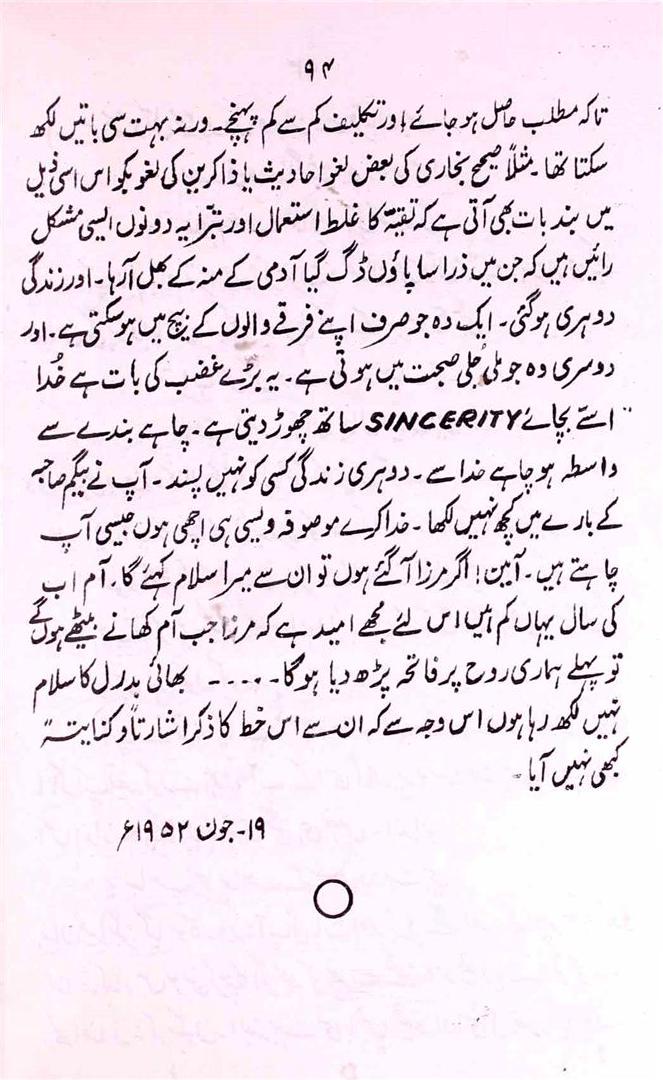 ۹۴
تاکہ مطلب حاصل ہو جائے اور تکلیف کم سے کم پہنچے۔ ورنہ بہت سی باتیں لکھ
سکتا تھا۔ مثلاً صحیح بخاری کی بعض لغو احادیث یا ذاکرین کی لغو بکواس اسی ذیل
میں بند بات بھی آتی ہے کہ تقیّہ کا غلط استعمال اور تبرّا یہ دونوں ایسی مشکل
رائیں ہیں کہ جن میں ذرا سا پاؤں ڈگ گیا آدمی کے منہ کے بھل آرہا۔ اور زندگی
دوہری ہوگئی۔ ایک وہ جو صرف اپنے فرقے والوں کے بیچ میں ہو سکتی ہے۔ اور
دوسری وہ جو ملی جلی صحبت میں ہوتی ہے۔ یہ بڑے غضب کی بات ہے خُدا
اسے بچائے SINCERITY ساتھ چھوڑ دیتی ہے۔ چاہے بندے سے
واسطہ ہو چاہے خدا سے۔ دوہری زندگی کسی کو نہیں پسند۔ آپ نے بیگم صاحبہ
کے بارے میں کچھ نہیں لکھا۔ خدا کرے موصوفہ ویسی ہی اچھی ہوں جیسی آپ
چاہتے ہیں۔ آمین! اگر مرزا آگئے ہوں تو ان سے میرا سلام کہئے گا۔ آم اب
کی سال یہاں کم ہیں اس لئے مجھے امید ہے کہ مرزا جب آم کھانے بیٹھے ہوں گے
تو پہلے ہماری روح پر فاتحہ پڑھ دیا ہوگا۔ ۔۔۔۔ بھائی بدرل کا سلام
نہیں لکھ رہا ہوں اس وجہ سے کہ ان سے اس خط کا ذکر اشارتاً و کنایتہً
کبھی نہیں آیا۔
۱۹۔ جون ۱۹۵۲ء